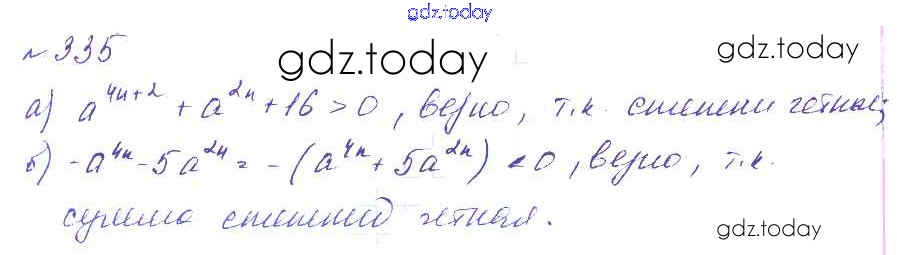 gdz.today
№335
gdz.today
gdz.today
а) a^{4n+2} + a^{2n} + 16 > 0, верно, т.к. степени четные;
б) -a^{4n} - 5a^{2n} = -(a^{4n} + 5a^{2n}) < 0, верно, т.к.
сумма степеней четная.
gdz.today